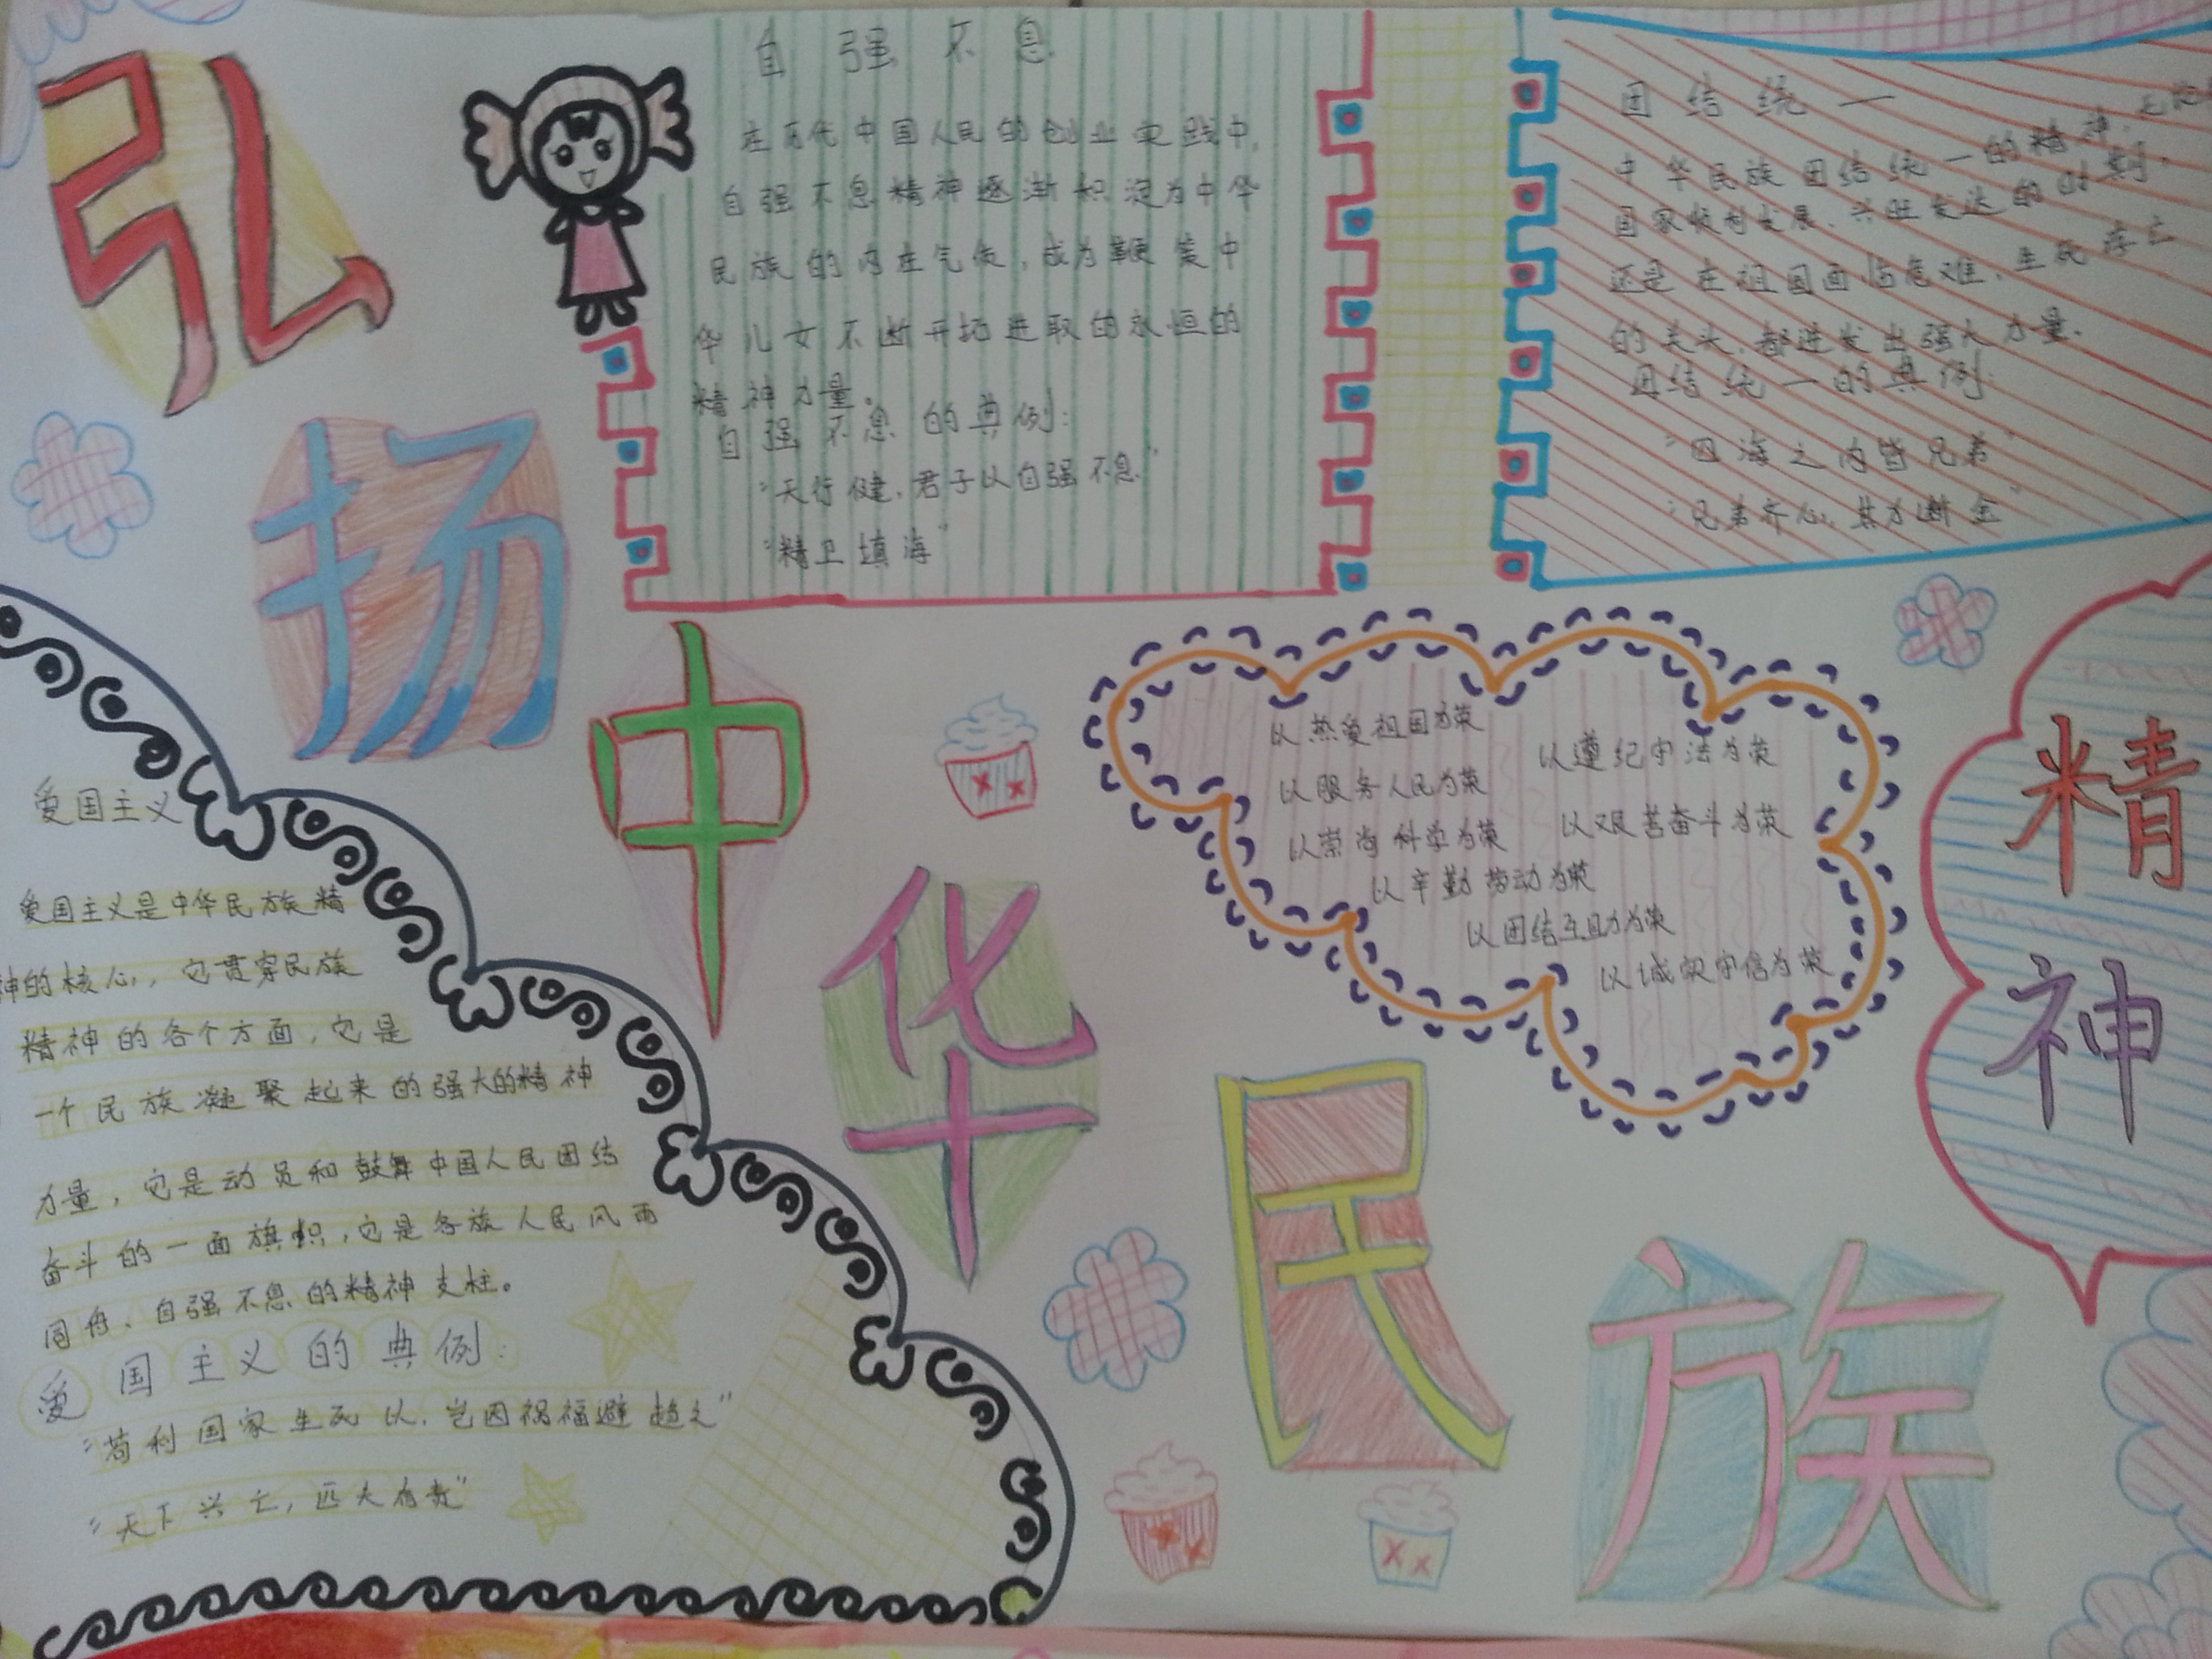 弘
扬
中
华
民
族
精
神
自强不息
在历代中国人民的创业实践中,
自强不息精神逐渐积淀为中华
民族的内在气质,成为鞭策中
华儿女不断开拓进取的永恒的
精神力量。
自强不息的典例:
“天行健,君子以自强不息”
“精卫填海”
团结统一
中华民族团结统一的精神,无论
国家顺利发展、兴旺发达的时期,
还是在祖国面临危难、生死存亡
的关头,都迸发出强大力量.
团结统一的典例:
“四海之内皆兄弟”
“兄弟齐心,其力断金”
以热爱祖国为荣
以服务人民为荣
以崇尚科学为荣
以辛勤劳动为荣
以团结互助为荣
以诚实守信为荣
以遵纪守法为荣
以艰苦奋斗为荣
爱国主义
爱国主义是中华民族精
神的核心,它贯穿民族
精神的各个方面,它是
一个民族凝聚起来的强大的精神
力量,它是动员和鼓舞中国人民团结
奋斗的一面旗帜,它是各族人民风雨
同舟、自强不息的精神支柱。
爱国主义的典例:
“苟利国家生死以,岂因祸福避趋之”
“天下兴亡,匹夫有责”